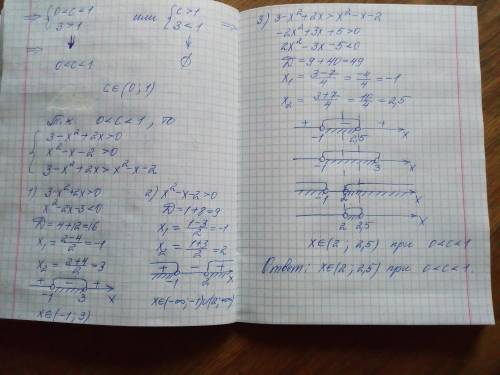 ⇒ { 0<c<1 или { c>1 ⇒
{ 3>1 { 3<1
↓ ↓
0<c<1 ∅
c∈(0;1)
Т.к. 0<c<1, то
{ 3-x²+2x>0
{ x²-x-2>0
{ 3-x²+2x>x²-x-2
1) 3-x²+2x>0
x²-2x-3<0
D=4+12=16
x₁=(2-4)/2=-1
x₂=(2+4)/2=3
+ - +
-1 3 x
x∈(-1;3)
2) x²-x-2>0
D=1+8=9
x₁=(1-3)/2=-1
x₂=(1+3)/2=2
+ - +
-1 2 x
x∈(-∞;-1)∪(2;+∞)
3) 3-x²+2x>x²-x-2
-2x²+3x+5>0
2x²-3x-5<0
D=9+40=49
x₁=(3-7)/4=-4/4=-1
x₂=(3+7)/4=10/4=2,5
+ - +
-1 2,5 x
-1 3 x
-1 2 x
2 2,5 x
x∈(2;2,5) при 0<c<1
Ответ: x∈(2;2,5) при 0<c<1.